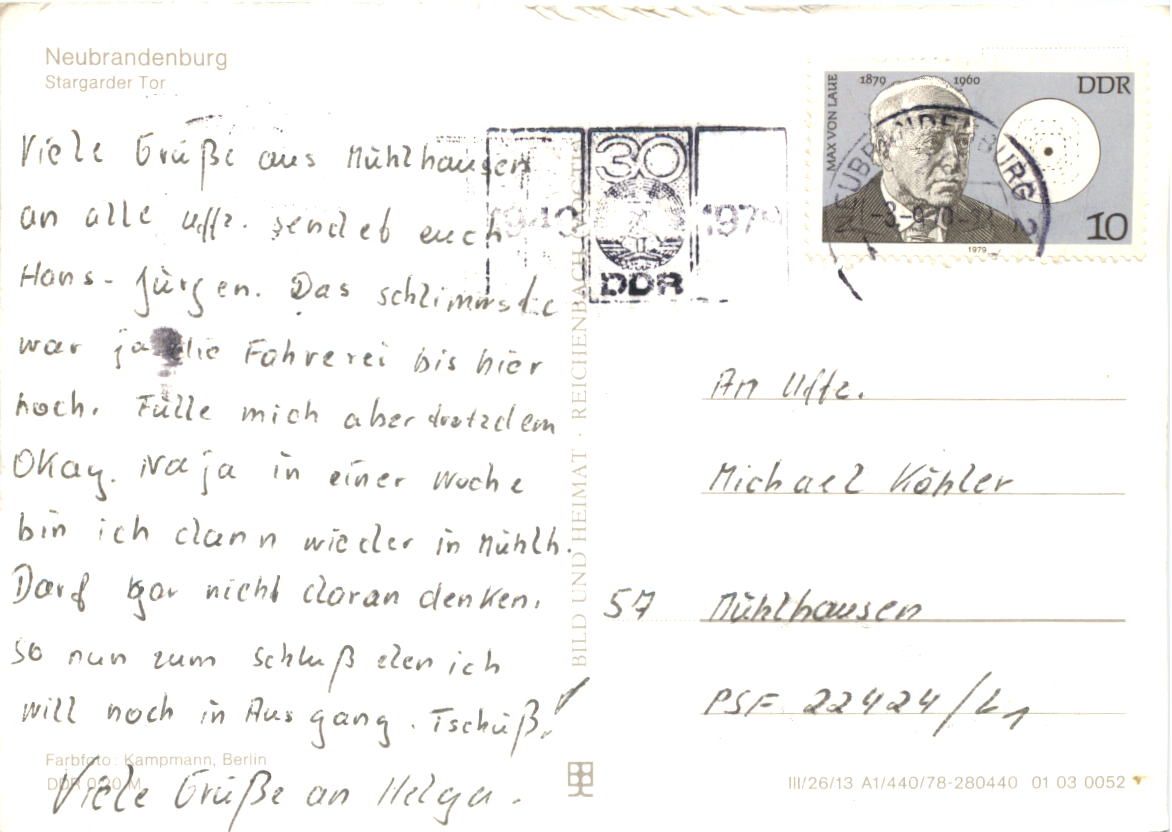 Neubrandenburg
Stargarder Tor
Viele Grüße aus Mühlhausen
an alle Uffz. sendet euch
Hans-Jürgen. Das schlimmste
war ja die Fahrerei bis hier
hoch. Fülle mich aber trotzdem
Okay. Na ja in einer Woche
bin ich dann wieder in Mühlh.
Darf gar nicht daran denken.
so nun zum schluß den ich
will noch in Ausgang. Tschüß!
Viele Grüße an Helga.
Farbfoto: Kampmann, Berlin
DDR 0,20 M
BILD UND HEIMAT · REICHENBACH
1949 30 1979
DDR
MAX VON LAUE
1879 1960
DDR
10
1979
NEUBRANDENBURG 2
An Uffz.
Michael Köhler
57 Mühlhausen
PSF 22424/L1
III/26/13 A1/440/78-280440 01 03 0052